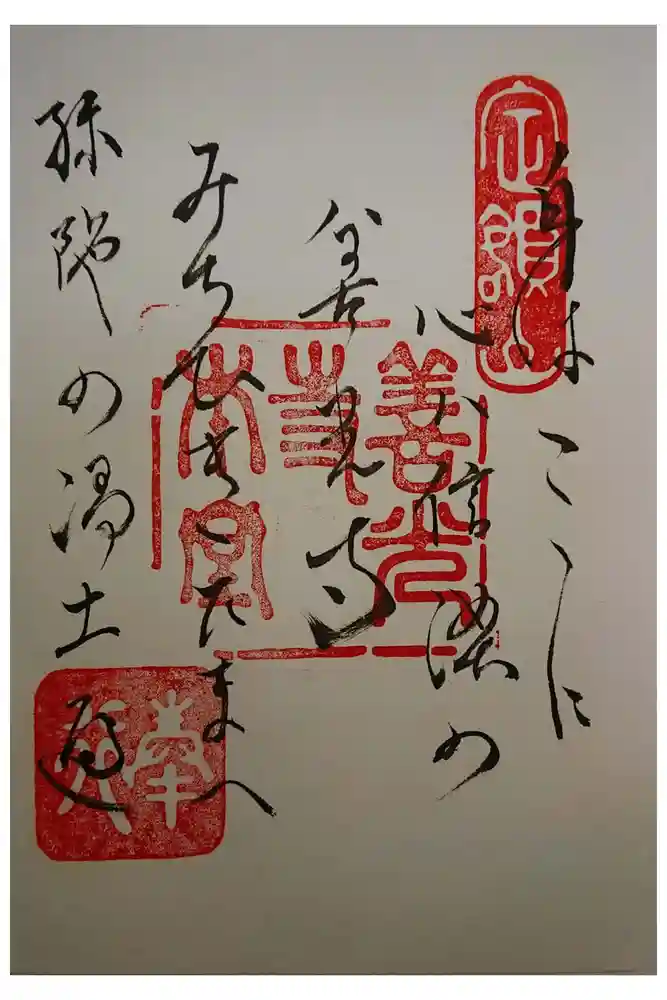 定額山
身はここに
心ハ信濃の
善光寺
みちびきたまへ
弥陀の浄土へ
善光
寺
奉